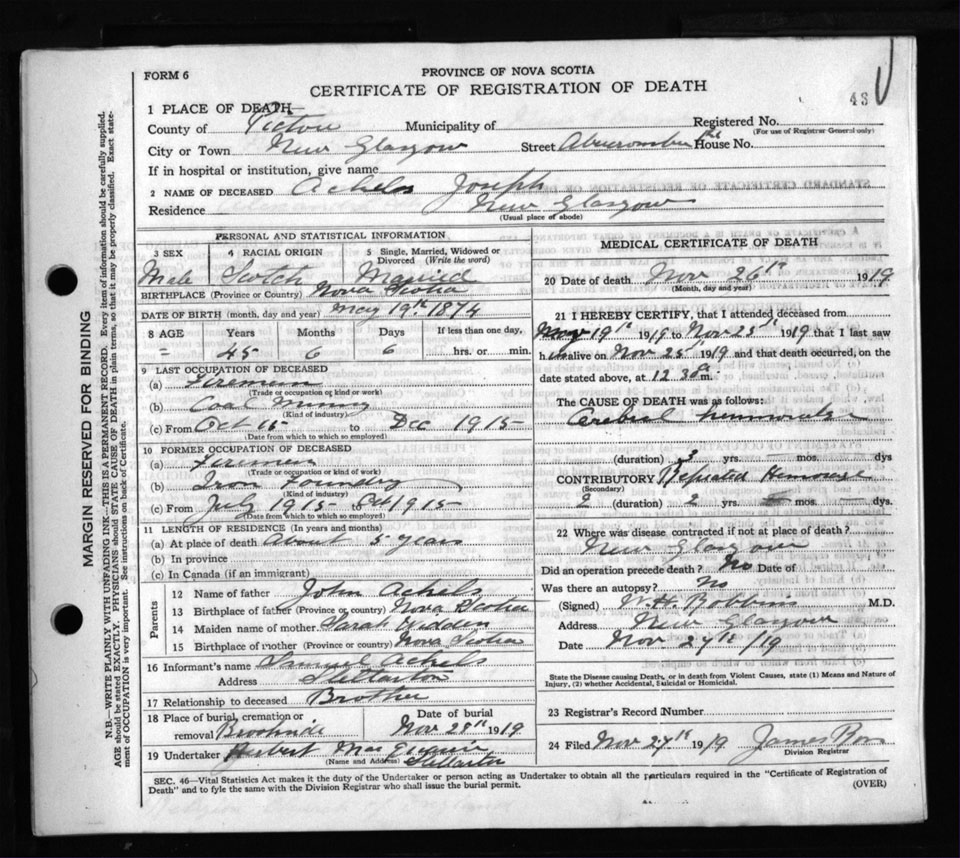 FORM 6
PROVINCE OF NOVA SCOTIA
CERTIFICATE OF REGISTRATION OF DEATH
43
1 PLACE OF DEATH—
County of Pictou Municipality of Registered No.
(For use of Registrar General only)
City or Town New Glasgow Street Abercrombie Rd House No.
If in hospital or institution, give name
2 NAME OF DECEASED Achels Joseph
Residence New Glasgow
(Usual place of abode)
PERSONAL AND STATISTICAL INFORMATION
3 SEX 4 RACIAL ORIGIN 5 Single, Married, Widowed or Divorced (Write the word)
Male Scotch Married
BIRTHPLACE (Province or Country) Nova Scotia
DATE OF BIRTH (month, day and year) May 19th 1874
8 AGE Years Months Days If less than one day,
= 45 6 6 hrs. or min.
9 LAST OCCUPATION OF DECEASED
(a) Firemein
(Trade or occupation or kind or work)
(b) Coal Mining
(Kind of industry)
(c) From Oct 15 to Dec 1915
(Date from which to which so employed)
10 FORMER OCCUPATION OF DECEASED
(a) Firemein
(Trade or occupation or kind of work)
(b) Iron Foundry
(Kind of industry)
(c) From July 1915 to Oct 1915
(Date from which to which so employed)
11 LENGTH OF RESIDENCE (In years and months)
(a) At place of death About 5 years
(b) In province
(c) In Canada (if an immigrant)
Parents
12 Name of father John Achels
13 Birthplace of father (Province or country) Nova Scotia
14 Maiden name of mother Sarah
15 Birthplace of mother (Province or country) Nova Scotia
16 Informant's name Achels
Address Stellarton
17 Relationship to deceased Brother
18 Place of burial, cremation or removal Date of burial
Nov 28th 1919
19 Undertaker Herbert
(Name and Address) Stellarton
MEDICAL CERTIFICATE OF DEATH
20 Date of death Nov 26th 1919
(Month, day and year)
21 I HEREBY CERTIFY, that I attended deceased from
May 19th 1919 to Nov 25th 1919 that I last saw
him alive on Nov 25th 1919 and that death occurred, on the
date stated above, at 12 30 m.
The CAUSE OF DEATH was as follows:
Cerebral
(duration) 3 yrs. — mos. — dys
CONTRIBUTORY Repeated
(Secondary)
2 (duration) 2 yrs. mos. — dys.
22 Where was disease contracted if not at place of death?
New Glasgow
Did an operation precede death? No Date of
Was there an autopsy? No
(Signed) W.H. Robbins M.D.
Address New Glasgow
Date Nov. 27th /19
State the Disease causing Death, or in death from Violent Causes, state (1) Means and Nature of
Injury, (2) whether Accidental, Suicidal or Homicidal.
23 Registrar's Record Number
24 Filed Nov 27th 1919 James Ross
Division Registrar
SEC. 46—Vital Statistics Act makes it the duty of the Undertaker or person acting as Undertaker to obtain all the particulars required in the "Certificate of Registration of
Death" and to fyle the same with the Division Registrar who shall issue the burial permit.
(OVER)
MARGIN RESERVED FOR BINDING
N.B.—WRITE PLAINLY WITH UNFADING INK—THIS IS A PERMANENT RECORD. Every item of information should be carefully supplied.
AGE should be stated EXACTLY. PHYSICIANS should STATE CAUSE OF DEATH in plain terms, so that it may be properly classified. Exact state-
ment of OCCUPATION is very important. See instructions on back of Certificate.